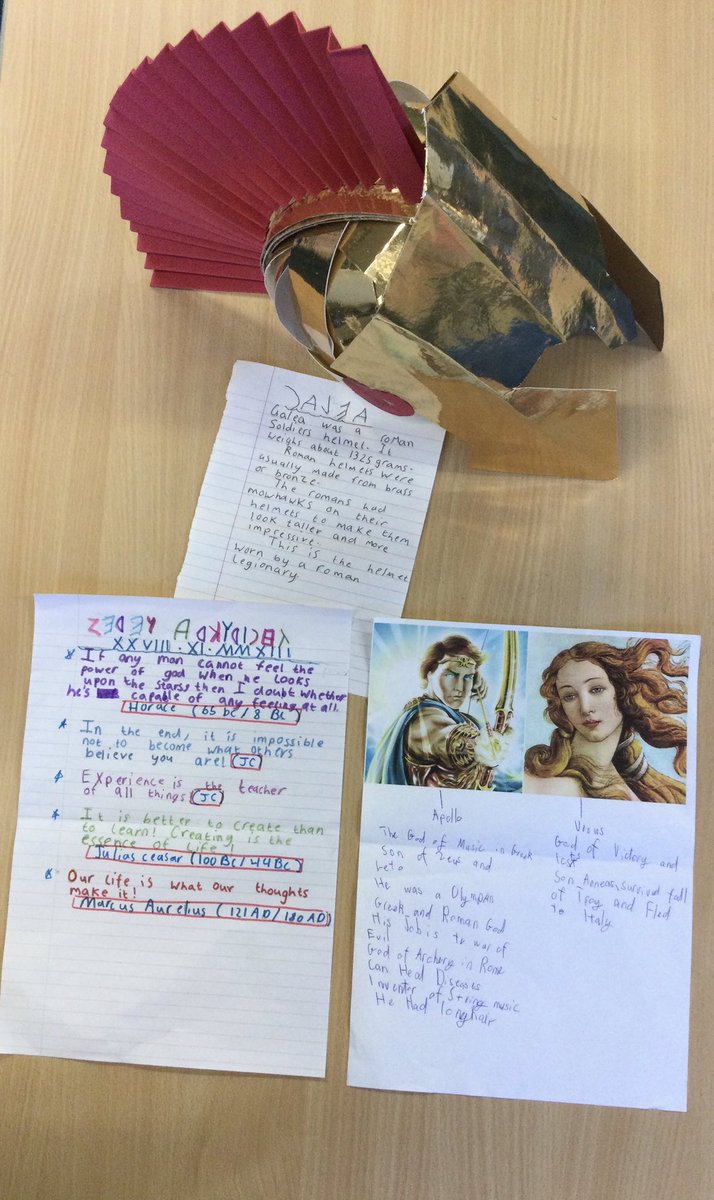 GALEA
Galea was a roman
Soldiers helmet. It
weighs about 1325 grams.
Roman helmets were
usually made from brass
or bronze.
The romans had
mowhawks on their
helmets to make them
look taller and more
impressive.
This is the helmet
worn by a roman
legionary
XXVIII .XI. MMXIII
If any man cannot feel the
power of god when he looks
upon the starss then I doubt whether
he's capable of any feeling at all.
Horace (65 bc / 8 Bc)
In the end, it is impossible
not to become what others
believe you are! (JC)
EXperience is the teacher
of all things! (JC)
It is better to create than
to learn! Creating is the
essence of life!
Julias ceasar (100 Bc / 44 Bc)
Our life is what our thoughts
make it!
Marcus Aurelius (121 AD / 180 AD)
Apollo
The God of Music in Greek
Son of Zeus and
Leto
He was a Olympan
Greek and Roman God
His Job is to war of
Evil
God of Archery in Rome
Can Heal Diseases
Inventer of String music
He Had long hair
Venus
God of Victory and
Son Aeneas survived fall
of Troy and Fled
to Italy